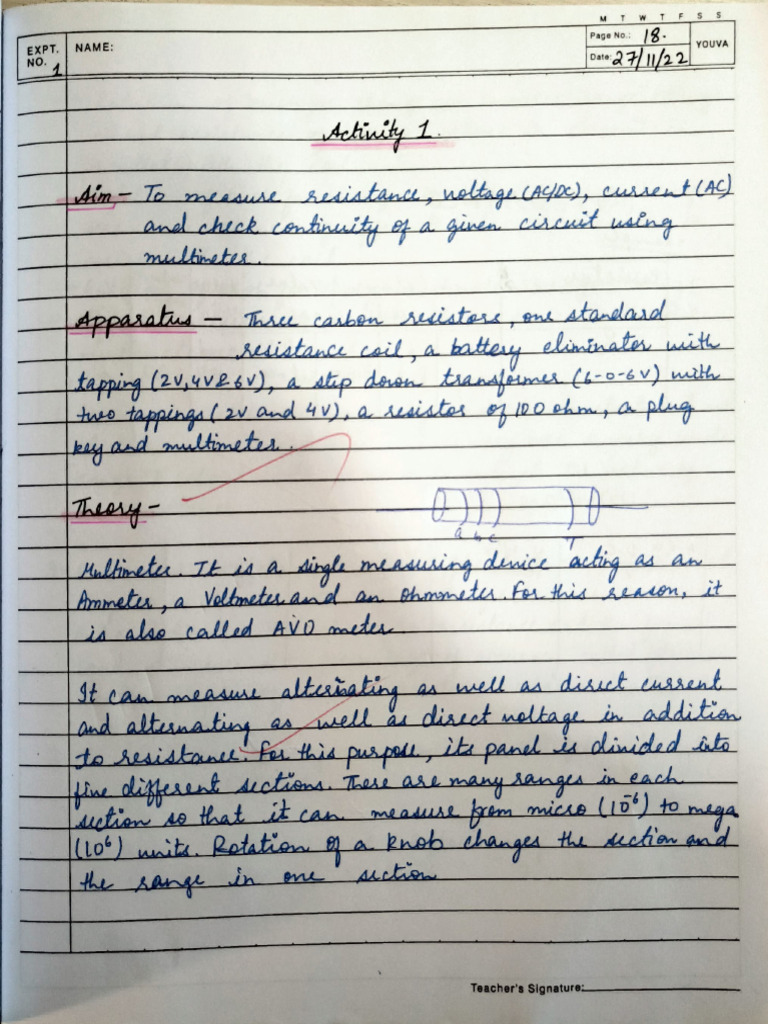 M T W T F S S
EXPT. NO. 1
NAME:
Page No.: 18.
Date: 27/11/22
YOUVA
Activity 1.
Aim - To measure resistance, voltage (AC/DC), current (AC)
and check continuity of a given circuit using
multimeter.
Apparatus - Three carbon resistors, one standard
resistance coil, a battery eliminator with
tapping (2V, 4V & 6V), a step down transformer (6-0-6V) with
two tappings (2V and 4V), a resistor of 100 ohm, a plug
key and multimeter.
Theory -
a b c T
Multimeter. It is a single measuring device acting as an
Ammeter, a Voltmeter and an Ohmmeter. For this reason, it
is also called AVO meter.
It can measure alternating as well as direct current
and alternating as well as direct voltage in addition
to resistance. For this purpose, its panel is divided into
five different sections. There are many ranges in each
section so that it can measure from micro (10⁻⁶) to mega
(10⁶) units. Rotation of a knob changes the section and
the range in one section
Teacher's Signature: